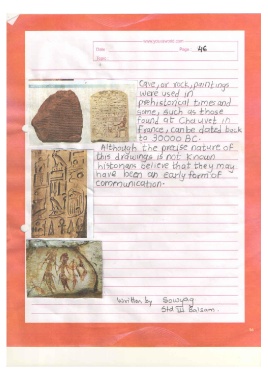 Date
Page 46
Cave, or rock, paintings
were used in
prehistorical times and
some, such as those
found at Chauvet in
France, can be dated back
to 30000 BC.
Although the precise nature of
this drawings is not known
historians believe that they may
have been an early form of
communication.
Written by Sowyag
Std III Balsam.